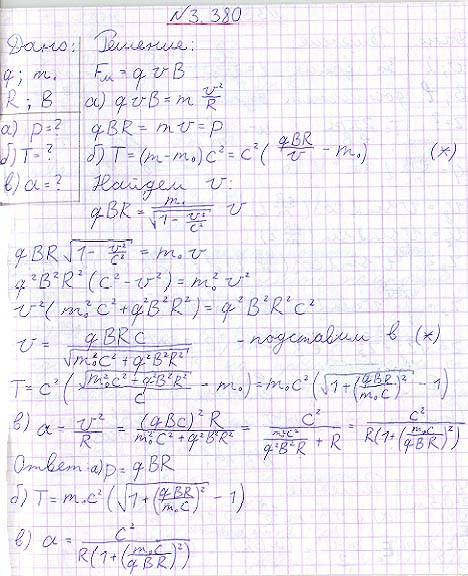 №3.380
Дано: Решение:
q; m₀ Fм = qvB
R; B а) qvB = m v²/R
а) p=? qBR = mv = p
б) T=? б) T=(m-m₀)c² = c²(qBR/v - m₀) (x)
в) a=? Найдем v:
qBR = m₀/√(1 - v²/c²) v
qBR√(1 - v²/c²) = m₀v
q²B²R²(c²-v²) = m₀²v²
v²(m₀²c²+q²B²R²) = q²B²R²c²
v = qBRc/√(m₀²c²+q²B²R²) - подставим в (x)
T = c²(√(m₀²c²+q²B²R²)/c - m₀) = m₀c²(√(1+(qBR/m₀c)²) - 1)
в) a = v²/R = (qBc)²R/(m₀²c²+q²B²R²) = c²/(m₀²c²/(q²B²R) + R) = c²/(R(1+(m₀c/qBR)²))
Ответ: а) p = qBR
б) T = m₀c²(√(1+(qBR/m₀c)²) - 1)
в) a = c²/(R(1+(m₀c/qBR)²))